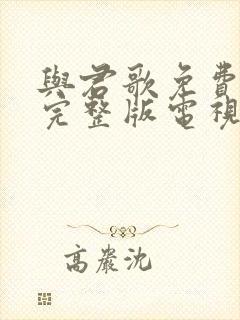 與君歌免費
完整版電視
高嚴沈